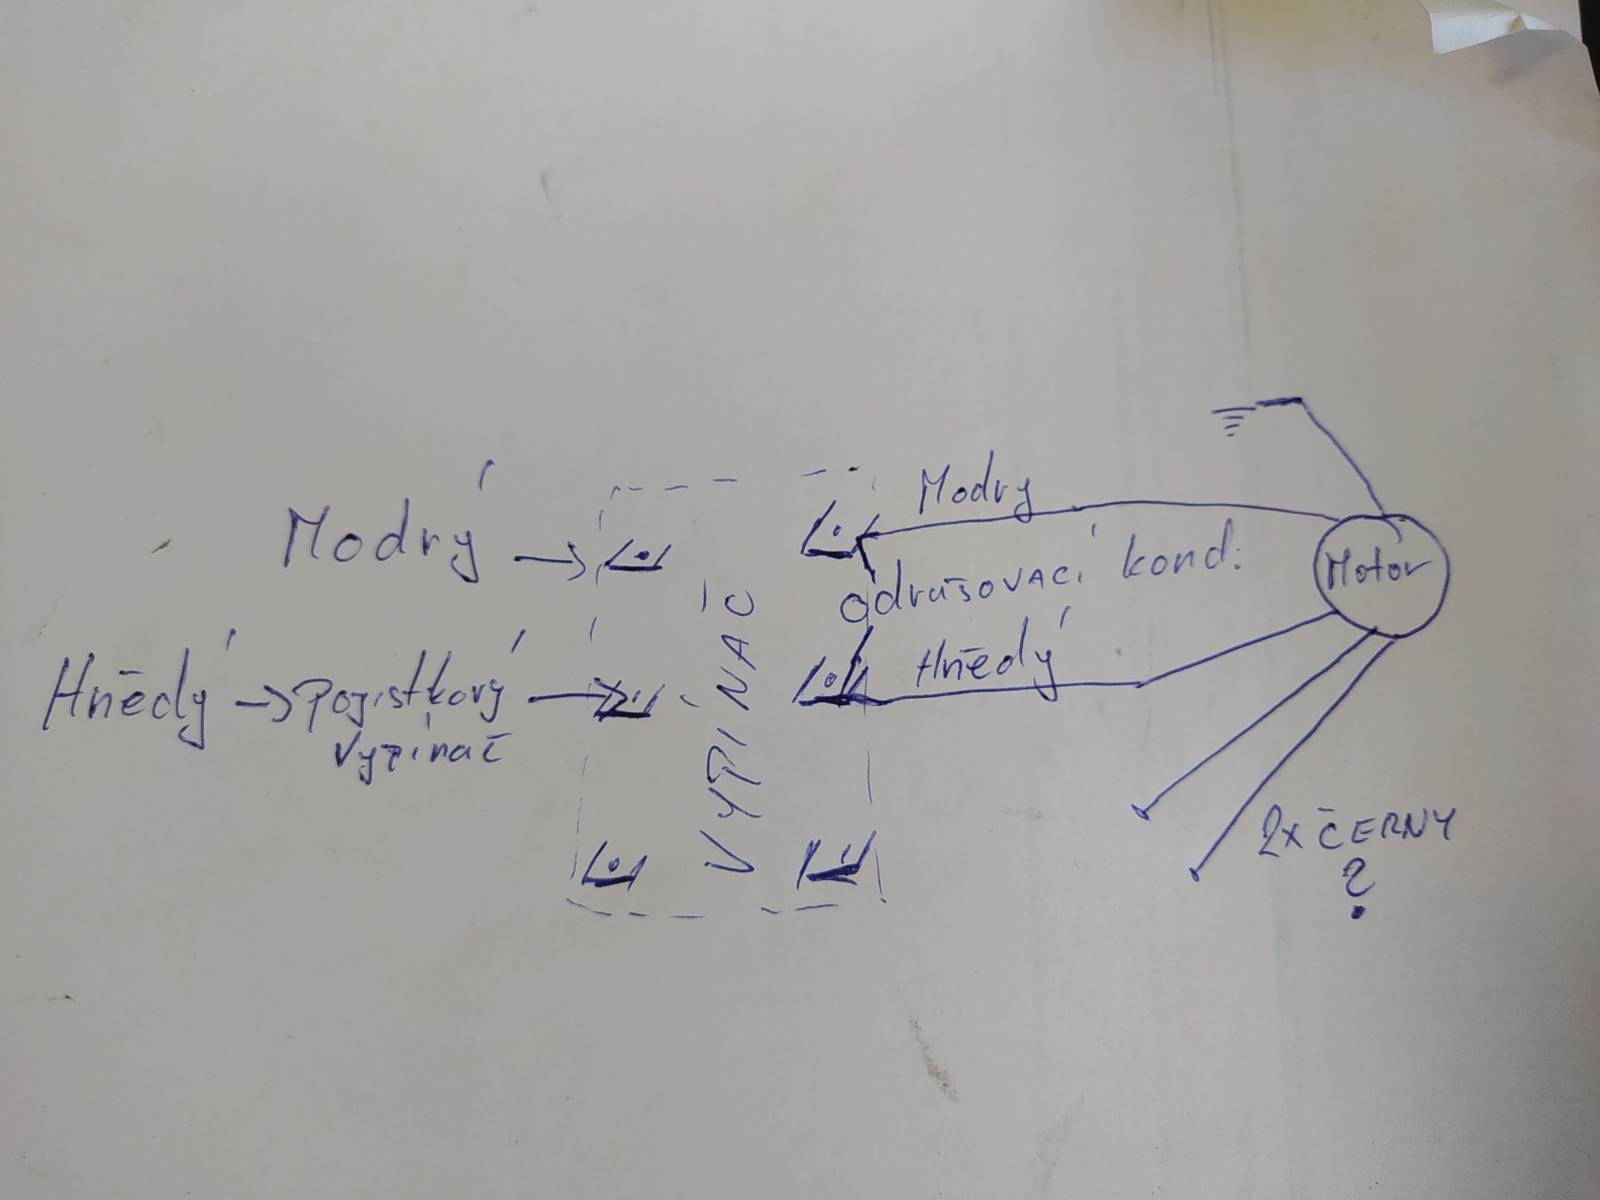 Modrý
Modry
Motor
odrušovací kond.
Hnědý
pojistkový
vypínač
VYPÍNAČ
Hnědý
2x ČERNY
?